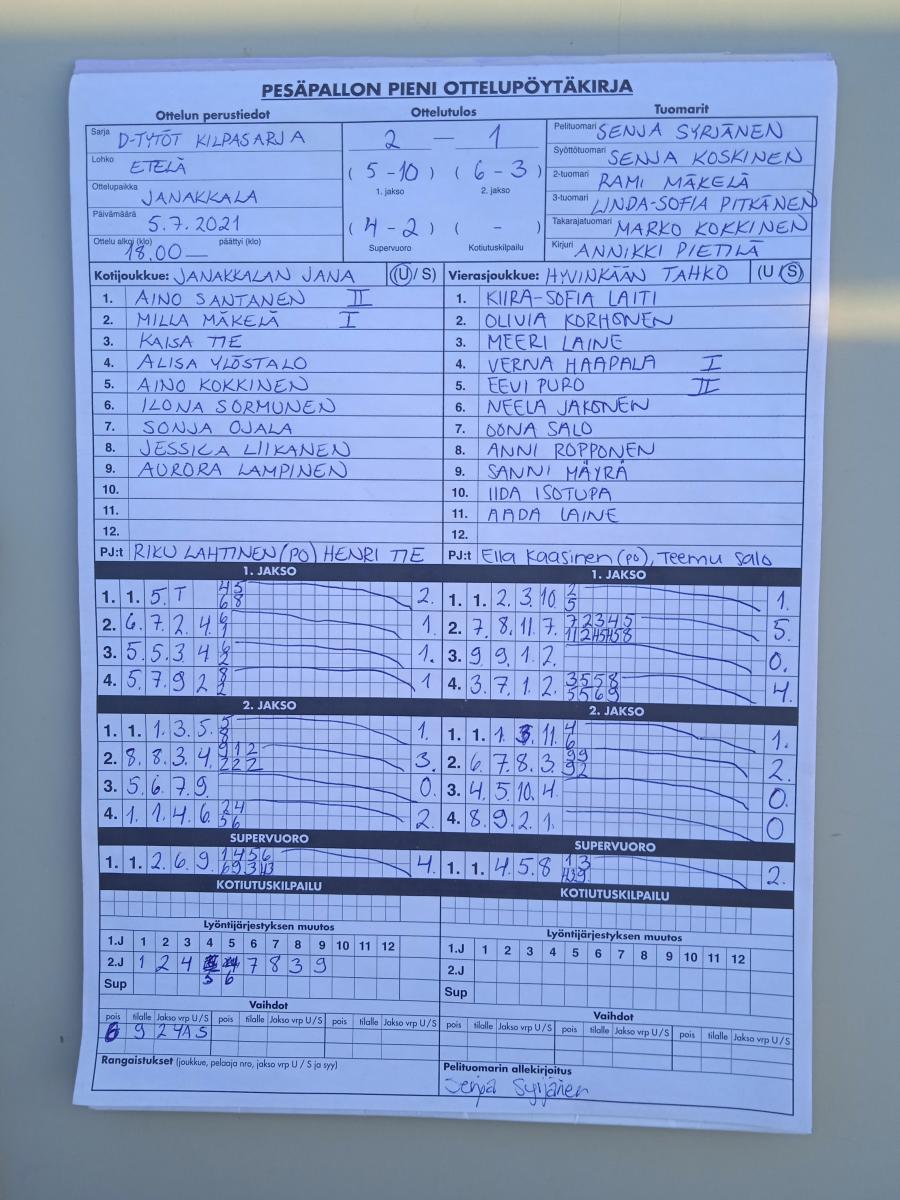 PESÄPALLON PIENI OTTELUPÖYTÄKIRJA
Ottelun perustiedot
Sarja D-TYTÖT KILPASARJA
Lohko ETELÄ
Ottelupaikka JANAKKALA
Päivämäärä 5.7.2021
Ottelu alkoi (klo) päättyi (klo)
18.00 —
Ottelutulos
2 — 1
( 5 - 10 ) ( 6 - 3 )
1. jakso 2. jakso
( 4 - 2 ) ( - )
Supervuoro Kotiutuskilpailu
Tuomarit
Pelituomari SENJA SYRJÄNEN
Syöttötuomari SENJA KOSKINEN
2-tuomari RAMI MÄKELÄ
3-tuomari LINDA-SOFIA PITKÄNEN
Takarajatuomari MARKO KOKKINEN
Kirjuri ANNIKKI PIETILÄ
Kotijoukkue: JANAKKALAN JANA (U / S)
1. AINO SANTANEN II
2. MILLA MÄKELÄ I
3. KAISA TIE
4. ALISA YLÖSTALO
5. AINO KOKKINEN
6. ILONA SORMUNEN
7. SONJA OJALA
8. JESSICA LIIKANEN
9. AURORA LAMPINEN
10.
11.
12.
PJ:t RIKU LAHTINEN (PO) HENRI TIE
Vierasjoukkue: HYVINKÄÄN TAHKO (U / S)
1. KIIRA-SOFIA LAITI
2. OLIVIA KORHONEN
3. MEERI LAINE
4. VERNA HAAPALA I
5. EEVI PURO II
6. NEELA JAKONEN
7. OONA SALO
8. ANNI ROPPONEN
9. SANNI MÄYRÄ
10. IIDA ISOTUPA
11. AADA LAINE
12.
PJ:t Ella Kaasinen (po), Teemu Salo
1. JAKSO
1. 1. 5. T 4 5 2.
6 8
2. 6. 7. 2. 4. 1.
3. 5. 5. 3. 4 6 1.
2
4. 5. 7. 9. 2 8 1
2
2. JAKSO
1. 1. 1. 3. 5. 5 1.
8
2. 8. 8. 3. 4. 9 1 2 3.
2 2 2
3. 5. 6. 7. 9. 0.
4. 1. 1. 4. 6. 2 4 2.
5 6
SUPERVUORO
1. 1. 2. 6. 9. 1 4 5 6 4.
KOTIUTUSKILPAILU
1. JAKSO
1. 1. 2. 3. 10. 2 1.
5
2. 7. 8. 11. 7. 7 2 3 4 5 5.
3. 9. 9. 1. 2. 0.
4. 3. 7. 1. 2. 3 5 5 8 4.
5 5 6 9
2. JAKSO
1. 1. 1. 3. 11. 4 1.
6
2. 6. 7. 8. 3. 9 9 2.
9 2
3. 4. 5. 10. 4. 0.
4. 8. 9. 2. 1. 0
SUPERVUORO
1. 1. 4. 5. 8 1 3 2.
KOTIUTUSKILPAILU
Lyöntijärjestyksen muutos
1.J 1 2 3 4 5 6 7 8 9 10 11 12
2.J 1 2 4 7 8 3 9
5 6
Sup
Vaihdot
pois tilalle Jakso vrp U / S pois tilalle Jakso vrp U / S pois tilalle Jakso vrp U / S
6 9 2 4A S
Rangaistukset (joukkue, pelaaja nro, jakso vrp U / S ja syy)
Lyöntijärjestyksen muutos
1.J 1 2 3 4 5 6 7 8 9 10 11 12
2.J
Sup
Vaihdot
pois tilalle Jakso vrp U / S pois tilalle Jakso vrp U / S pois tilalle Jakso vrp U / S
Pelituomarin allekirjoitus
Senja Syrjänen